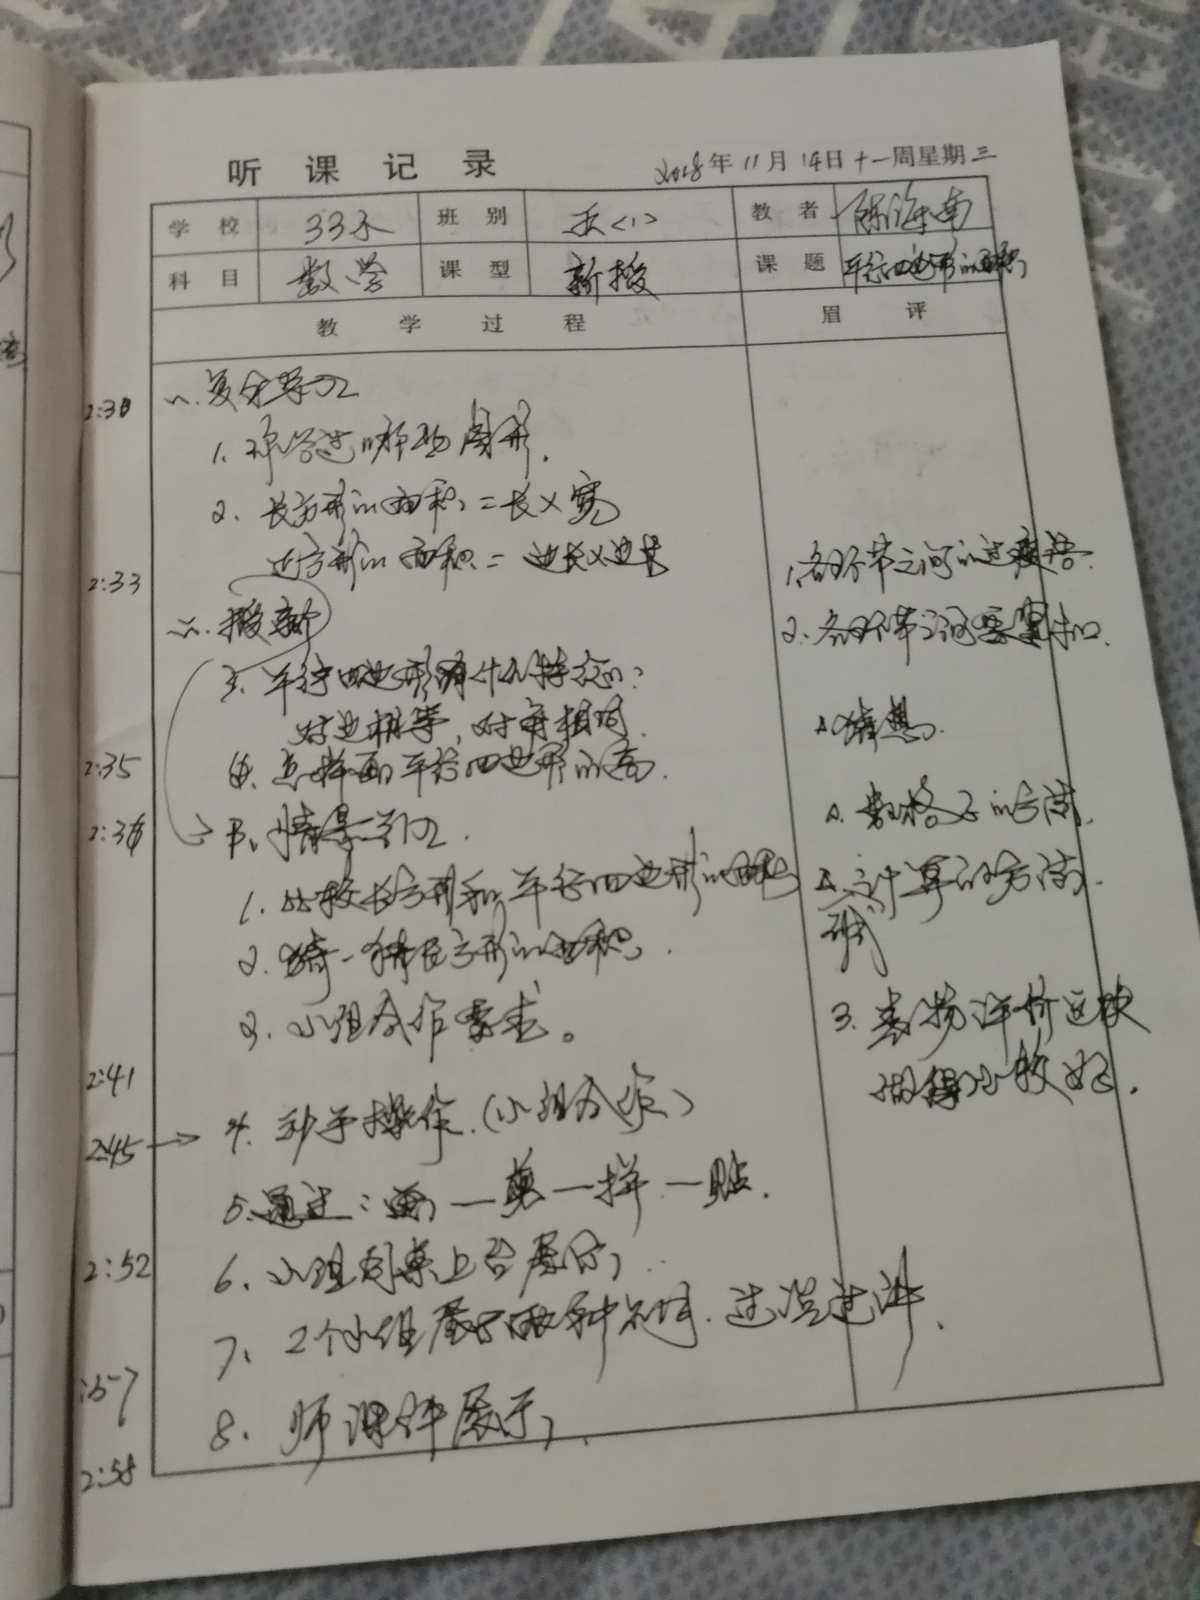 听课记录
2018年11月14日十一周星期三
学校 33小 班别 五<1> 教者 陈海南
科目 数学 课型 新授 课题 平行四边形的面积
教学过程 眉评
2:30 一、复习导入
1. 学过哪些图形.
2. 长方形的面积=长×宽
正方形的面积=边长×边长
1. 各环节之间的过渡语.
2:33 二. 授新
2. 各环节之间要置扣.
3. 平行四边形有什么特征:
对边相等, 对角相同.
猜想.
2:35 4. 怎样画平行四边形的高.
数格子的方法.
2:36 → B、情景导入.
1. 比较长方形和平行四边形的面积
计算的方法.
2. 猜一猜长方形的面积.
3. 小组合作要求。
3. 教师评价这块
做得比较好.
2:41
2:45 → 4. 动手操作.(小组合作)
5. 通过:画一剪一拼一贴.
2:52 6. 小组到桌上台展示,
7、2个小组展示两种 .边说边讲.
:57
8. 师课件展示,
2:58